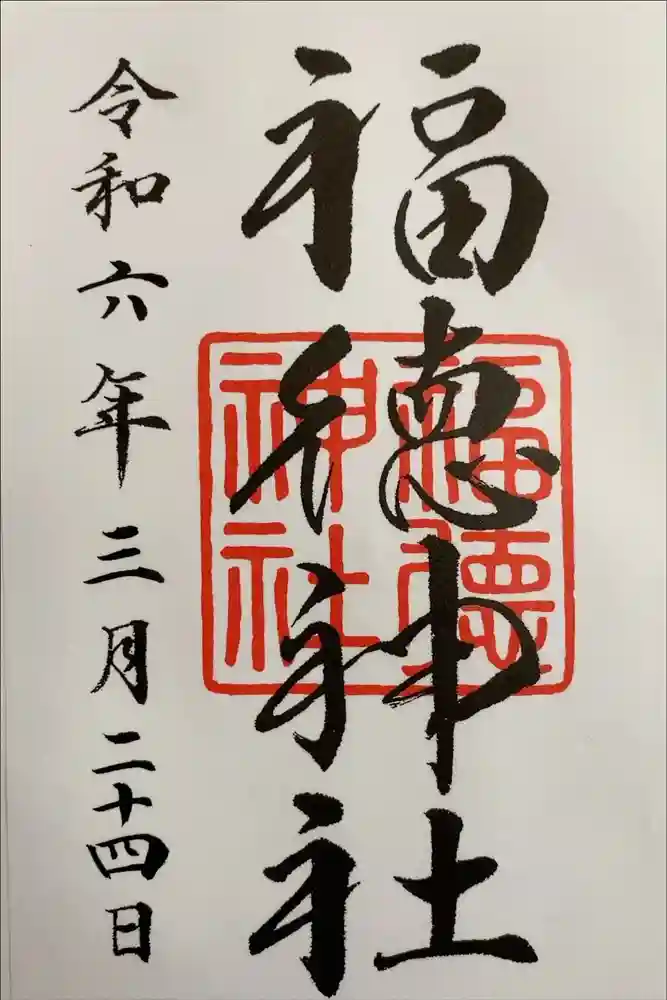 福徳神社
福徳神社
令和六年三月二十四日